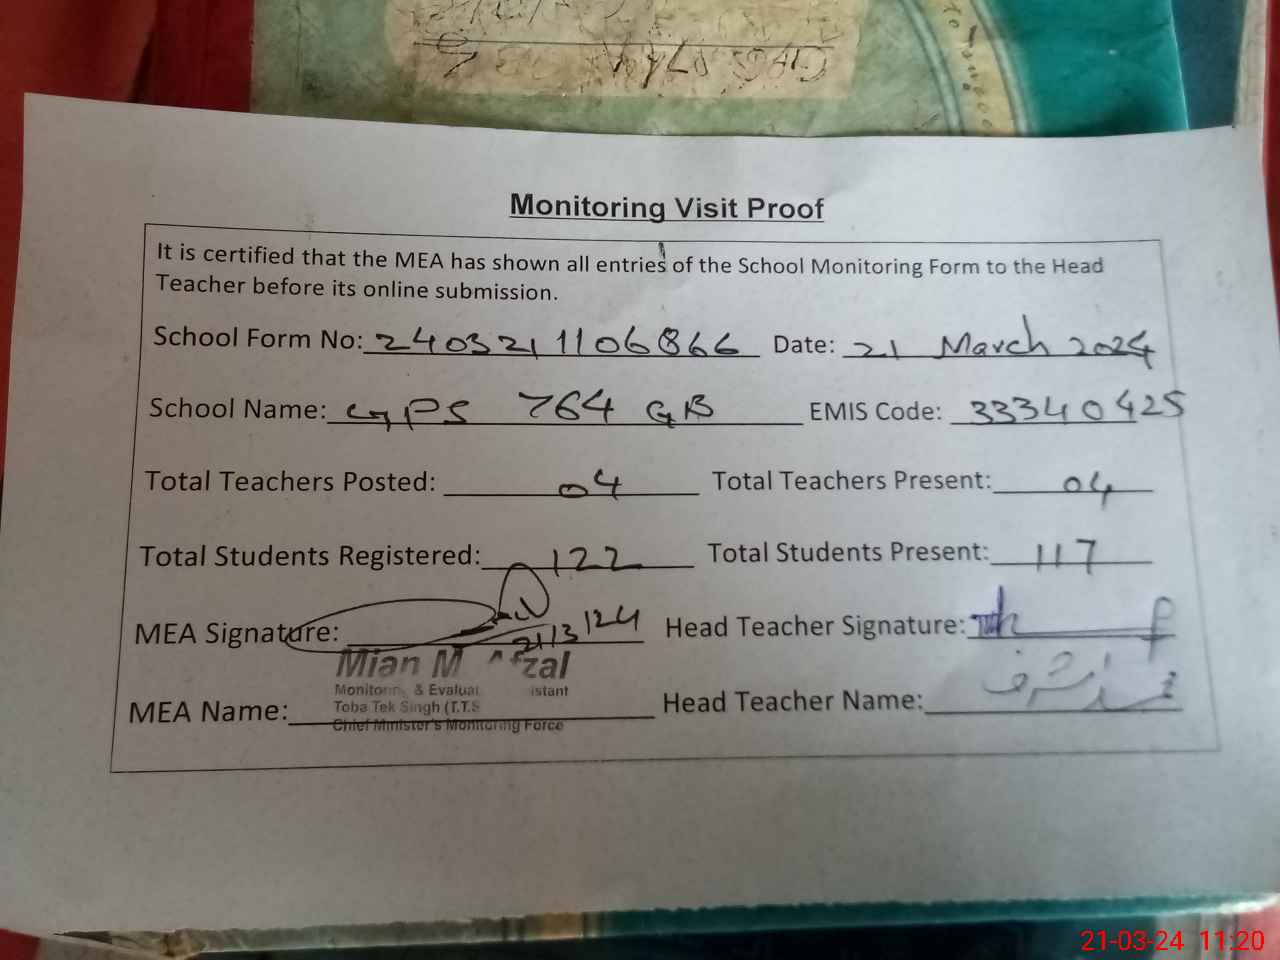 Monitoring Visit Proof
It is certified that the MEA has shown all entries of the School Monitoring Form to the Head
Teacher before its online submission.
School Form No: 240321 1106866 Date: 21 March 2024
School Name: GPS 764 GB EMIS Code: 33340425
Total Teachers Posted: 04 Total Teachers Present: 04
Total Students Registered: 122 Total Students Present: 117
MEA Signature: 21/3/24 Head Teacher Signature:
Mian M Afzal
Monitoring & Evaluat istant
Toba Tek Singh (T.T.S
MEA Name: Head Teacher Name:
Chief Minister's Monitoring Force
21-03-24 11:20